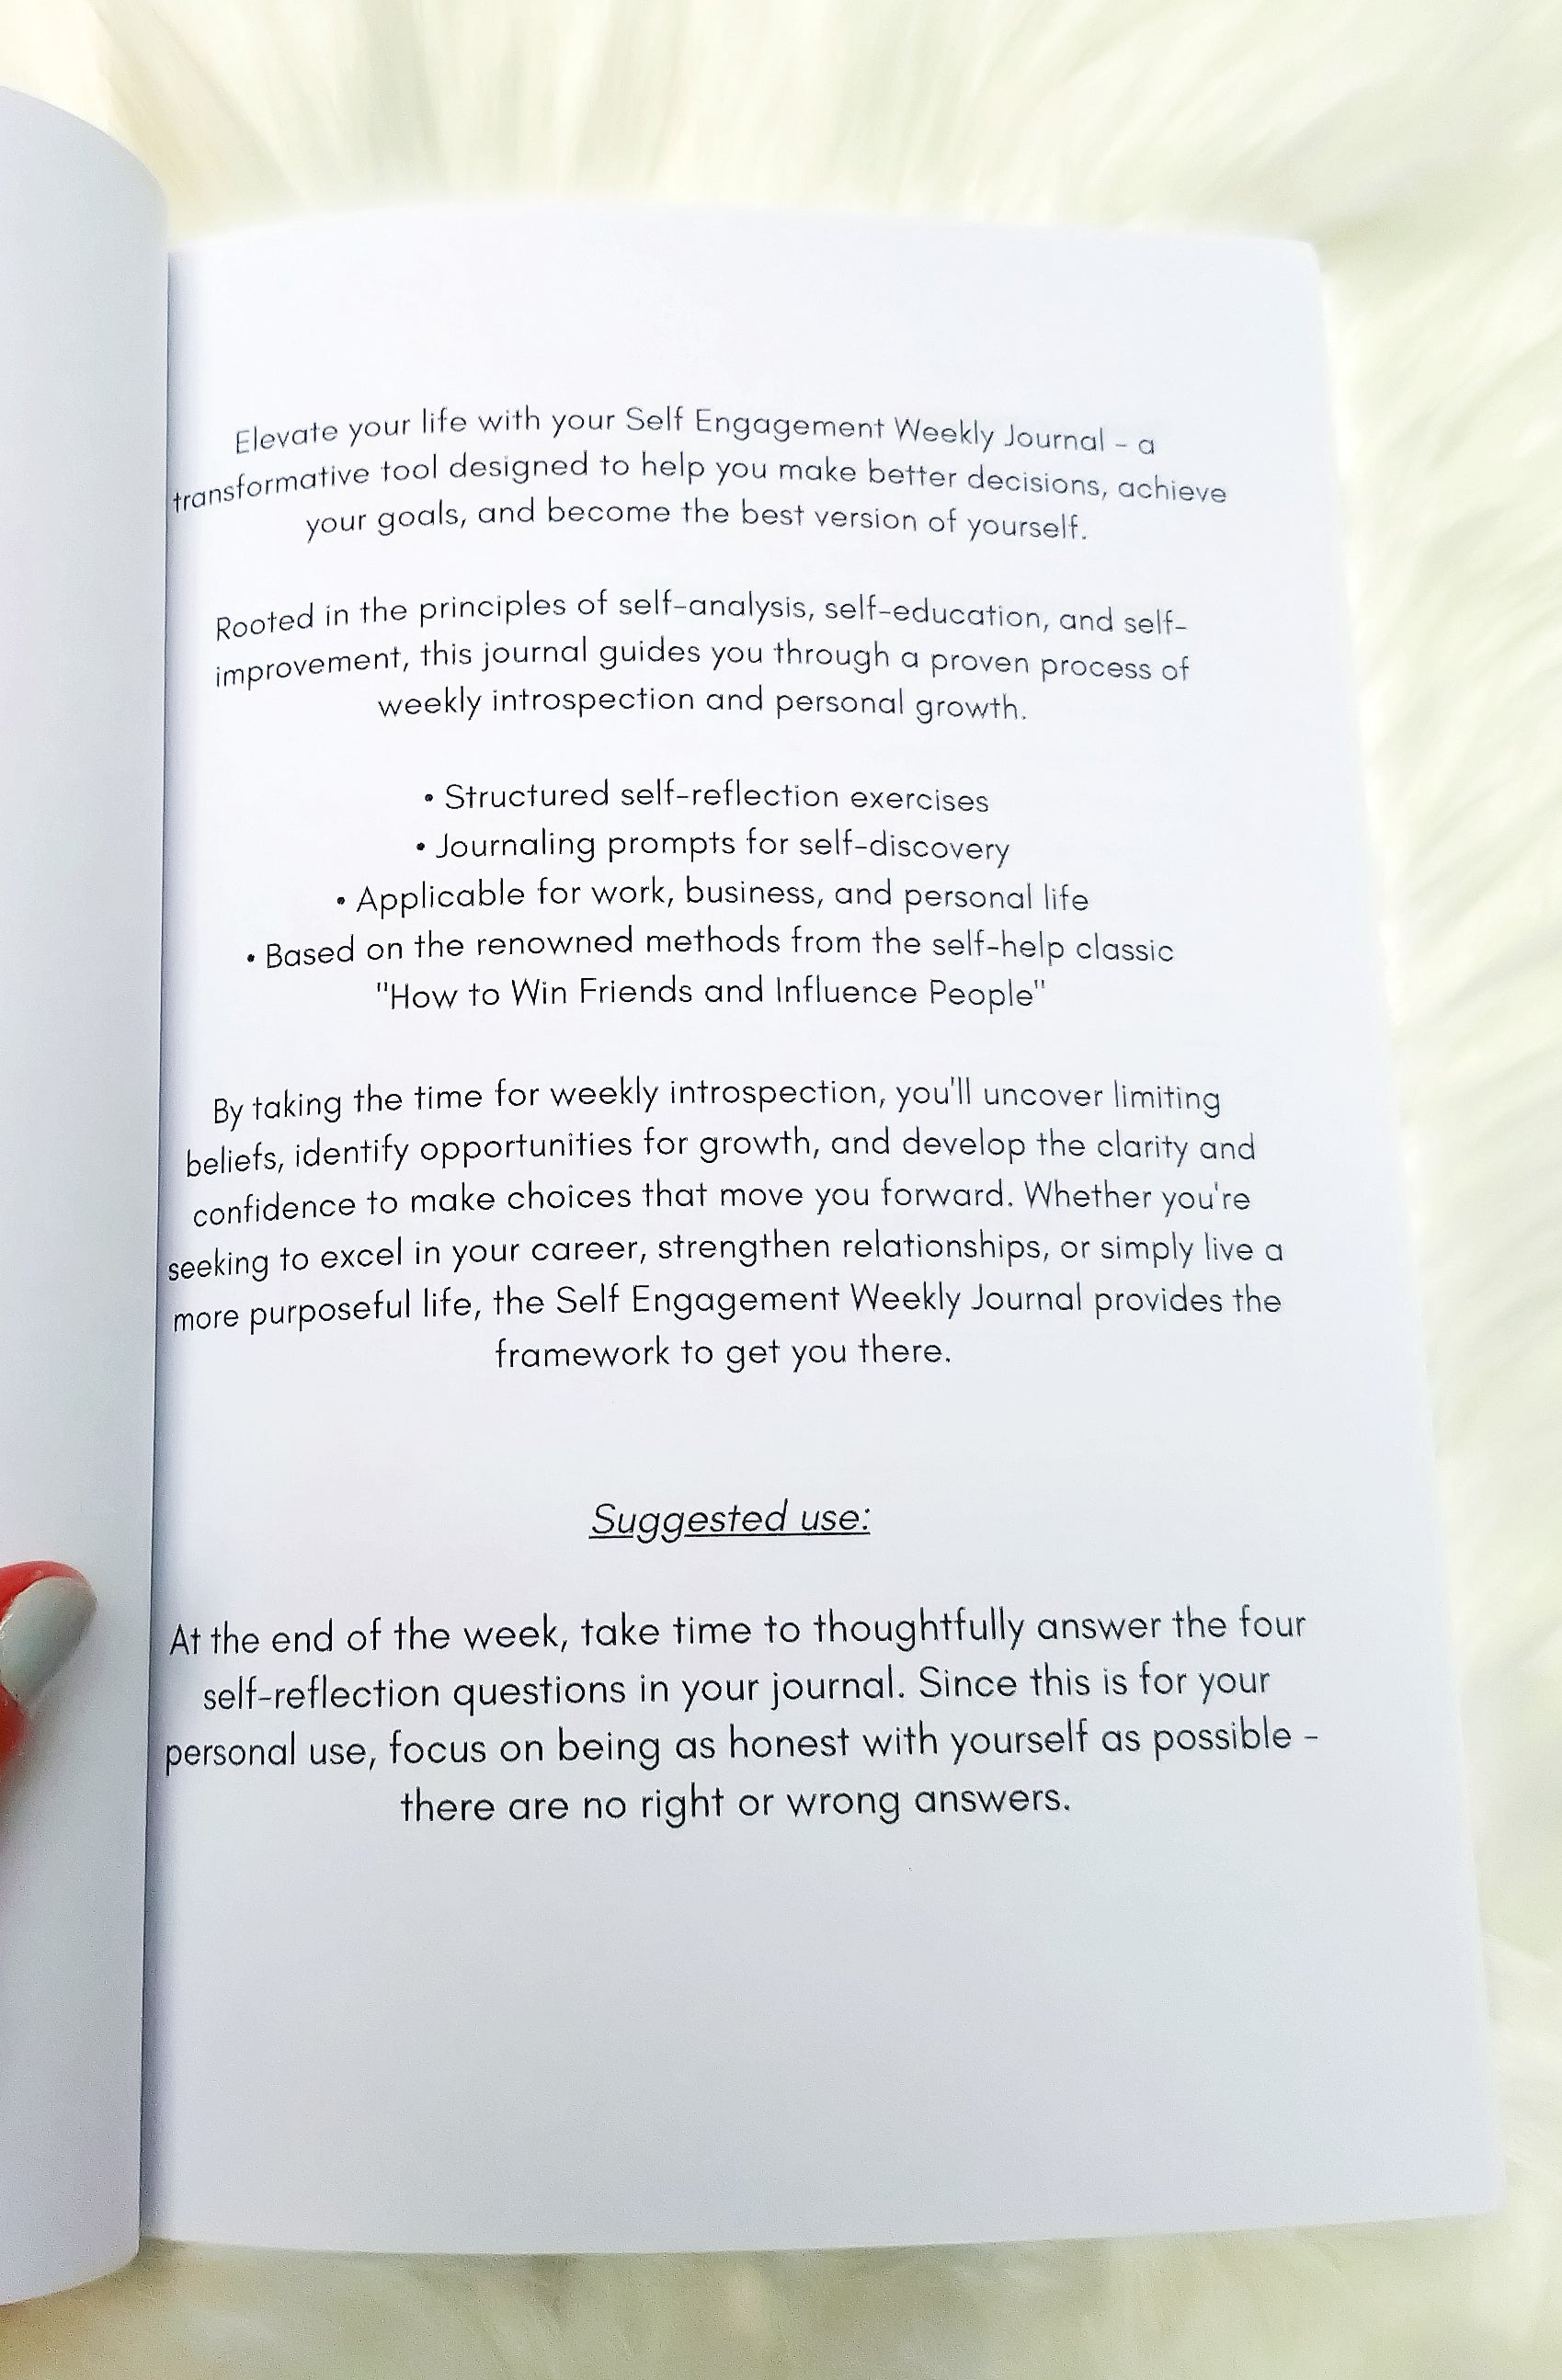 Elevate your life with your Self Engagement Weekly Journal - a
transformative tool designed to help you make better decisions, achieve
your goals, and become the best version of yourself.
Rooted in the principles of self-analysis, self-education, and self-
improvement, this journal guides you through a proven process of
weekly introspection and personal growth.
• Structured self-reflection exercises
• Journaling prompts for self-discovery
• Applicable for work, business, and personal life
• Based on the renowned methods from the self-help classic
"How to Win Friends and Influence People"
By taking the time for weekly introspection, you'll uncover limiting
beliefs, identify opportunities for growth, and develop the clarity and
confidence to make choices that move you forward. Whether you're
seeking to excel in your career, strengthen relationships, or simply live a
more purposeful life, the Self Engagement Weekly Journal provides the
framework to get you there.
Suggested use:
At the end of the week, take time to thoughtfully answer the four
self-reflection questions in your journal. Since this is for your
personal use, focus on being as honest with yourself as possible -
there are no right or wrong answers.